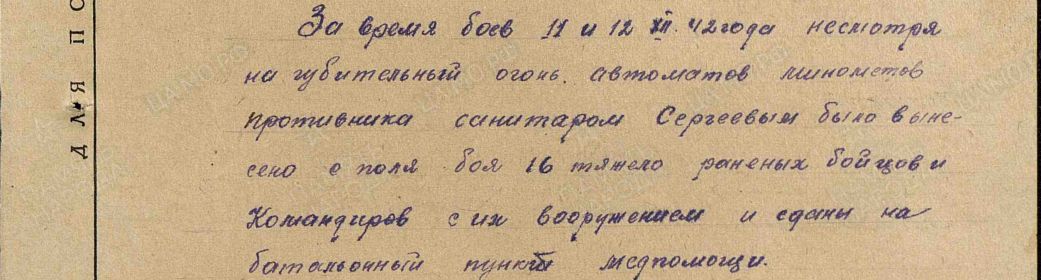 За время боев 11 и 12 XII. 42 года несмотря
на губительный огонь. автоматов минометов
противника санитаром Сергеевым было выне-
сено с поля боя 16 тяжело раненых бойцов и
Командиров с их вооружением и сданы на
батальонный пункт медпомощи.
ДЛЯ ПО